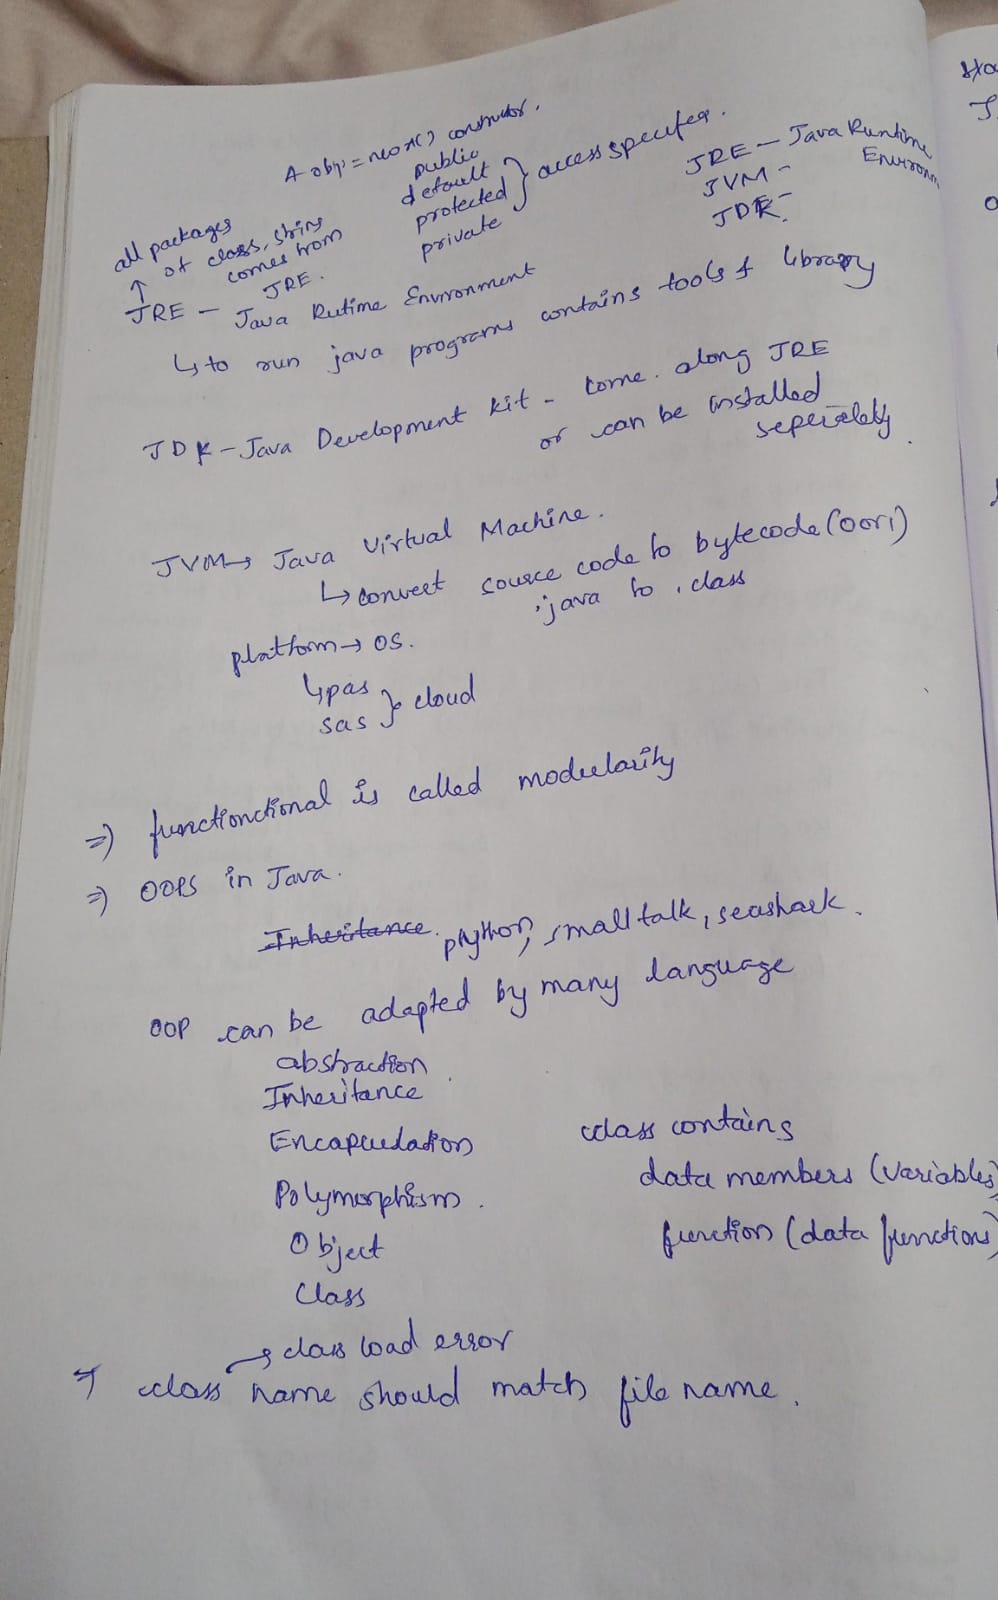 A obj = new A() constructor.
public
default
protected } access specifer.
private
JRE - Java Runtime
Environm
JVM -
JDK -
all packages
of class, string
comes from
JRE.
↑
JRE - Java Rutime Environment
↳ to run java programs contains tools & library
JDK - Java Development kit - come. along JRE
or can be installed
seperately.
JVM → Java Virtual Machine.
↳ convert source code to bytecode (0 or 1)
.java to .class
platform → os.
↳ pas
sas } cloud
⇒ functionctional is called modularity
⇒ OOPS in Java.
Inheritance. python, small talk, seashark.
OOP can be adapted by many language
abstraction.
Inheritance
Encapsulation
class contains
data members (variables)
Polymorphism.
function (data functions)
Object
Class
→ class load error
⇒ class name should match file name.